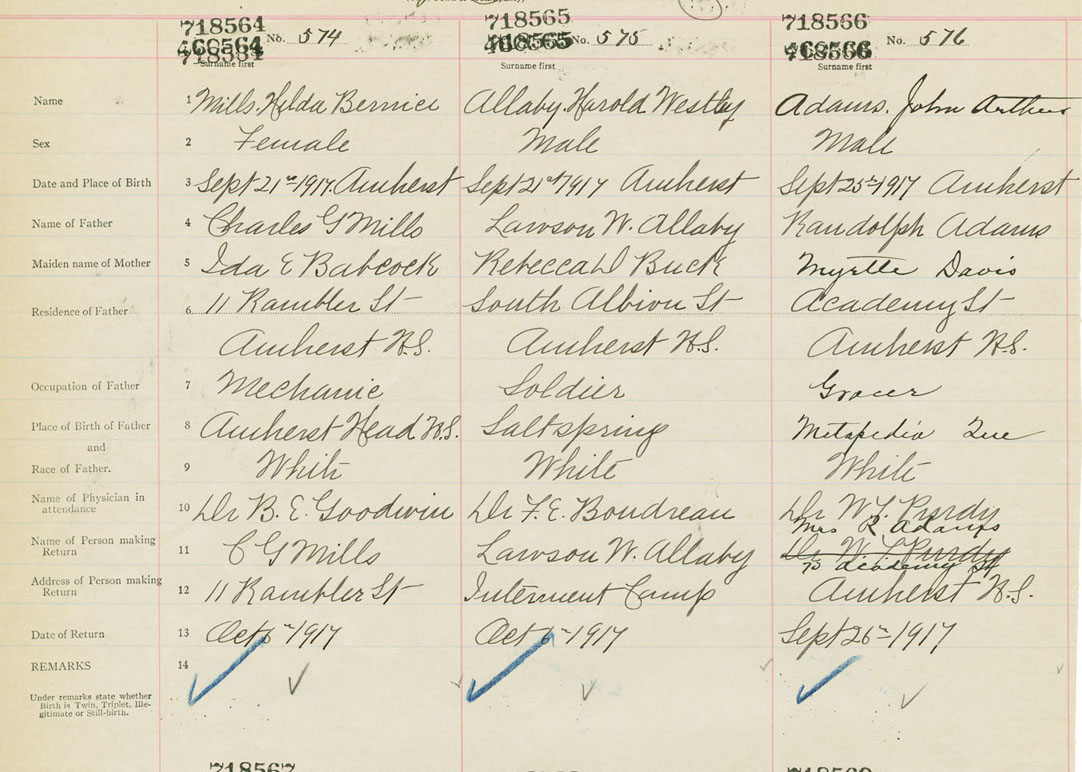 718564 718565 718566
468564 No. 574 468565 No. 575 468566 No. 576
718564
Surname first Surname first Surname first
Name 1 Mills. Hilda Bernice Allaby. Harold Westley Adams. John Arthur
Sex 2 Female Male Male
Date and Place of Birth 3 Sept 21st 1917. Amherst Sept 21st 1917 Amherst Sept 25th 1917 Amherst
Name of Father 4 Charles G Mills Lawson W. Allaby Randolph Adams
Maiden name of Mother 5 Ida E Babcock Rebecca D Buck Myrtle Davis
Residence of Father 6 11 Rambler St South Albion St Academy St
Amherst N.S. Amherst N.S. Amherst N.S.
Occupation of Father 7 Mechanic Soldier Grocer
Place of Birth of Father 8 Amherst Head N.S. Saltspring Metapedia Que
and
Race of Father. 9 White White White
Name of Physician in
attendance 10 Dr B. E. Goodwin Dr F. E. Boudreau Dr W. T. Purdy
Mrs R Adams
Name of Person making
Return 11 C G Mills Lawson W. Allaby Dr W. T. Purdy
70 Academy St
Address of Person making
Return 12 11 Rambler St Internment Camp Amherst N.S.
Date of Return 13 Oct 6th 1917 Oct 6th 1917 Sept 26th 1917
REMARKS 14
Under remarks state whether
Birth is Twin, Triplet, Ille-
gitimate or Still-birth.
718567